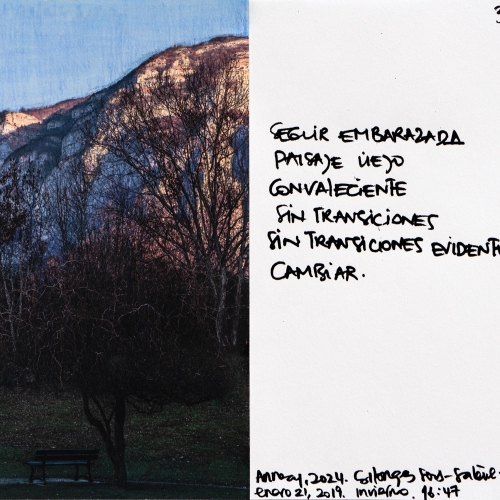 3
SEGUIR EMBARAZADA
PAISAJE VIEJO
CONVALECIENTE
SIN TRANSICIONES
SIN TRANSICIONES EVIDENT
CAMBIAR.
Annecy, 2024.
enero 21, 2019. invierno. 16:47